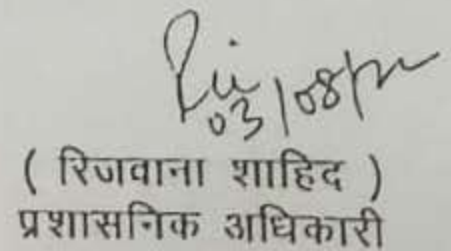 03/08/22
( रिजवाना शाहिद )
प्रशासनिक अधिकारी